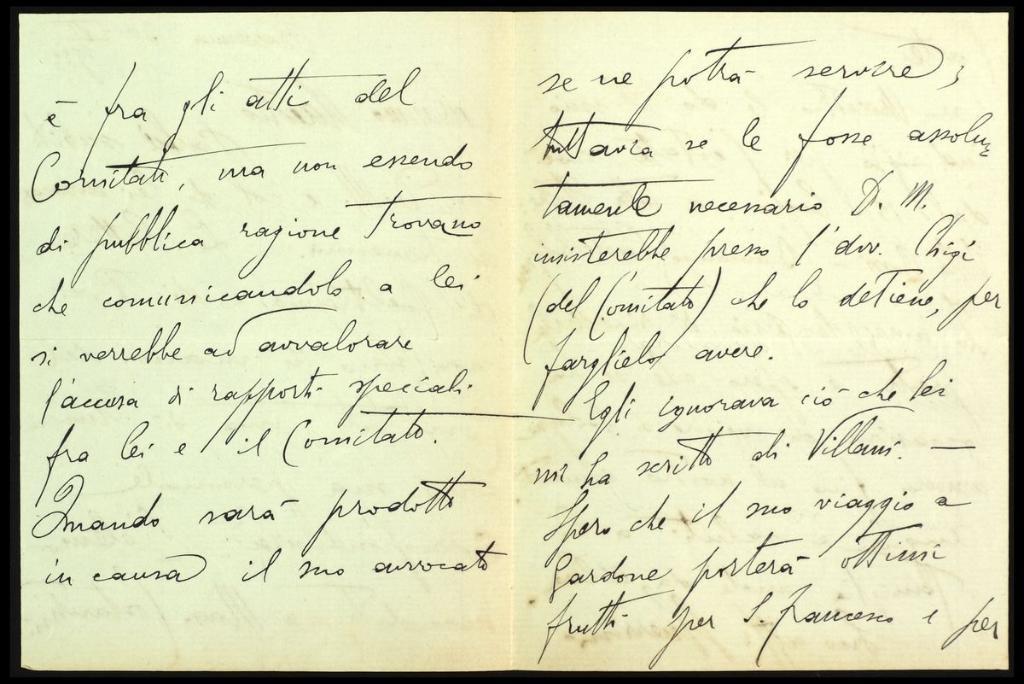 è fra gli atti del
Comitato, ma non essendo
di pubblica ragione trovano
che comunicandolo a lei
si verrebbe ad avvalorare
l'accusa di rapporti speciali
fra lei e il Comitato.
Quando sarà prodotto
in causa il suo avvocato
se ne potrà servire;
tuttavia se le fosse assolu=
tamente necessario D. M.
insisterebbe presso l'avv. Chigi
(del Comitato) che lo detiene, per
farglielo avere.
Egli ignorava ciò che lei
mi ha scritto di Villani. —
Spero che il suo viaggio a
Gardone porterà ottimi
frutti per S. Francesco e per